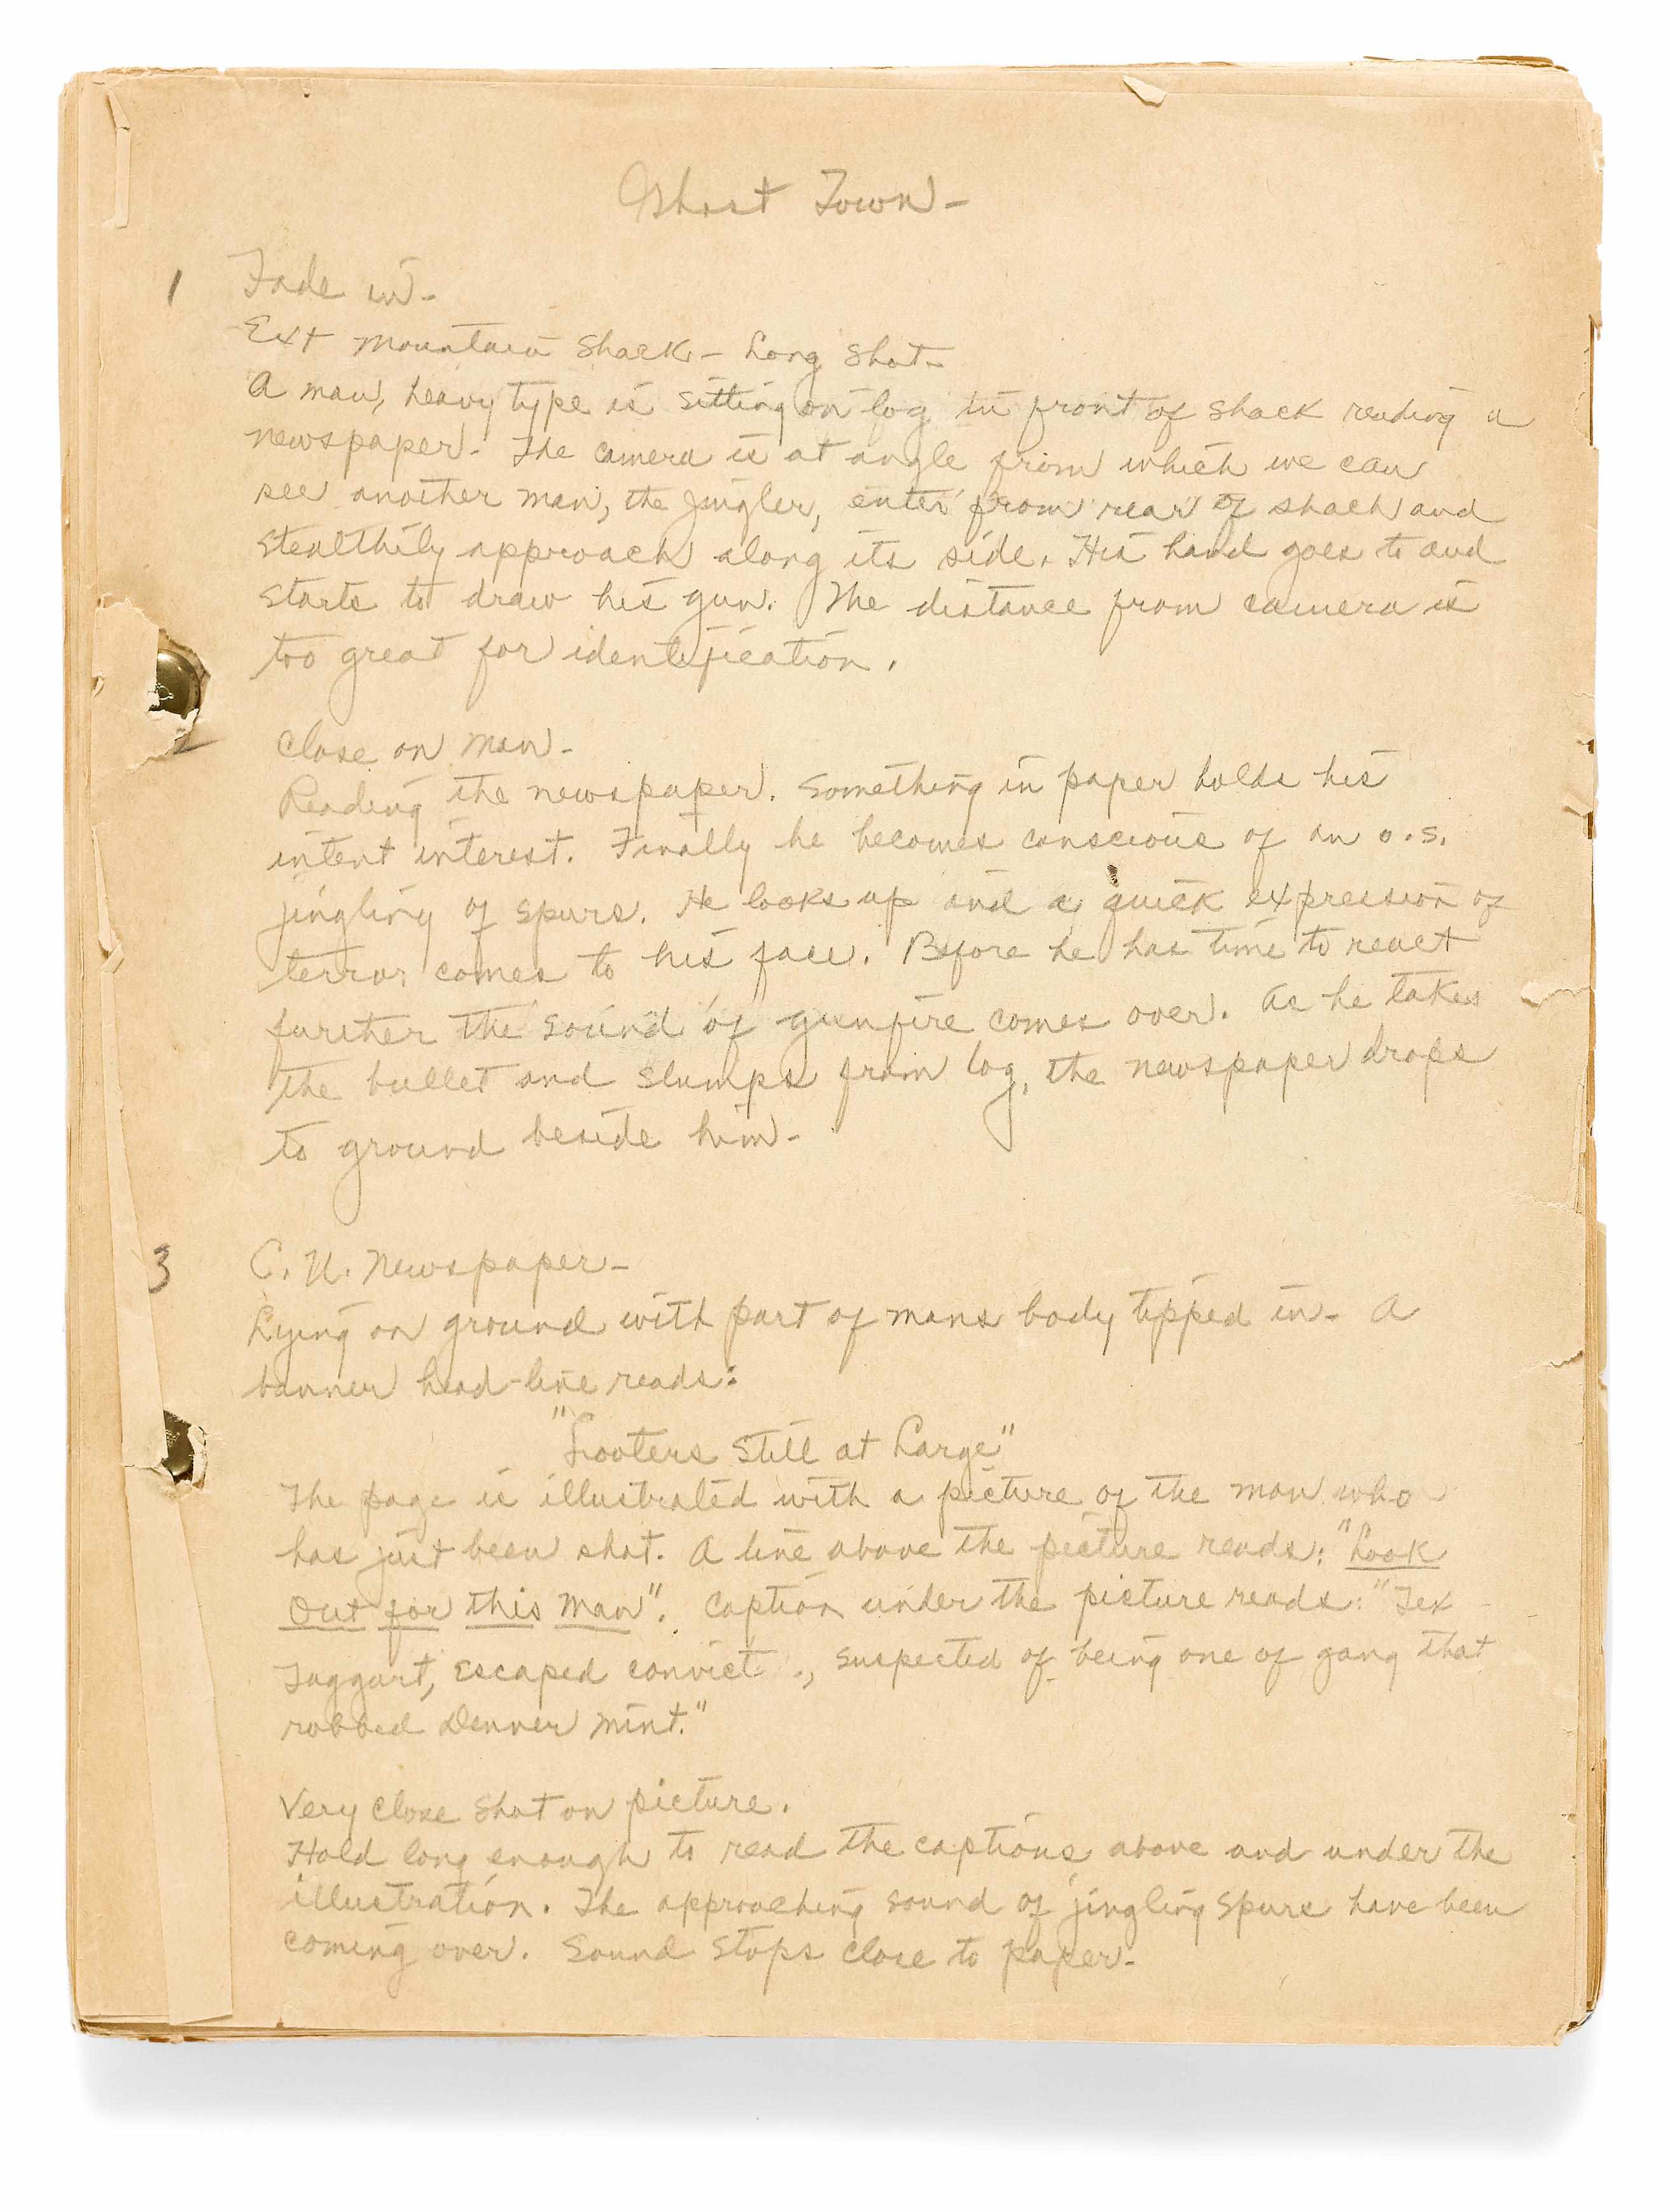 Ghost Town -
1 Fade in -
Ext Mountain Shack - Long Shot -
A man, heavy type is sitting on log in front of shack reading a
newspaper. The camera is at angle from which we can
see another man, the Jingler, enter from rear of shack and
stealthily approach along its side. His hand goes to and
starts to draw his gun. The distance from camera is
too great for identification.
2 Close on Man -
Reading the newspaper. Something in paper holds his
intent interest. Finally he becomes conscious of an o.s.
jingling of spurs. He looks up and a quick expression of
terror comes to his face. Before he has time to react
further the sound of gunfire comes over. As he takes
the bullet and slumps from log, the newspaper drops
to ground beside him -
3 C. U. Newspaper -
Lying on ground with part of mans body tipped in - A
banner head-line reads:
"Looters Still at Large"
The page is illustrated with a picture of the man who
has just been shot. A line above the picture reads: "Look
Out for this Man". Caption under the picture reads: "Tex
Taggart, escaped convict, suspected of being one of gang that
robbed Denver Mint."
Very close shot on picture.
Hold long enough to read the captions above and under the
illustration. The approaching sound of jingling spurs have been
coming over. Sound stops close to paper -